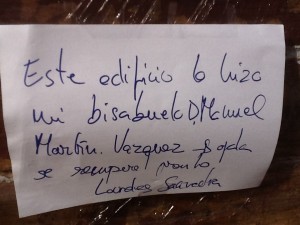 Este edificio lo hizo
mi bisabuelo D. Manuel
Martín Vazquez. Ojala
se recupere pronto
Lourdes Saavedra